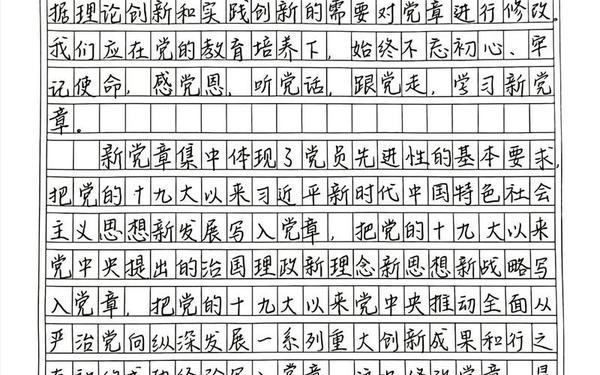 据理论创新和实践创新的需要对党章进行修改。
我们应在党的教育培养下，始终不忘初心、牢
记使命，感党恩，听党话，跟党走，学习新党
章。
新党章集中体现了党员先进性的基本要求，
把党的十九大以来习近平新时代中国特色社会
主义思想新发展写入党章，把党的十九大以来
党中央提出的治国理政新理念新思想新战略写
入党章，把党的十九大以来党中央推动全面从
严治党向纵深发展一系列重大创新成果和行之